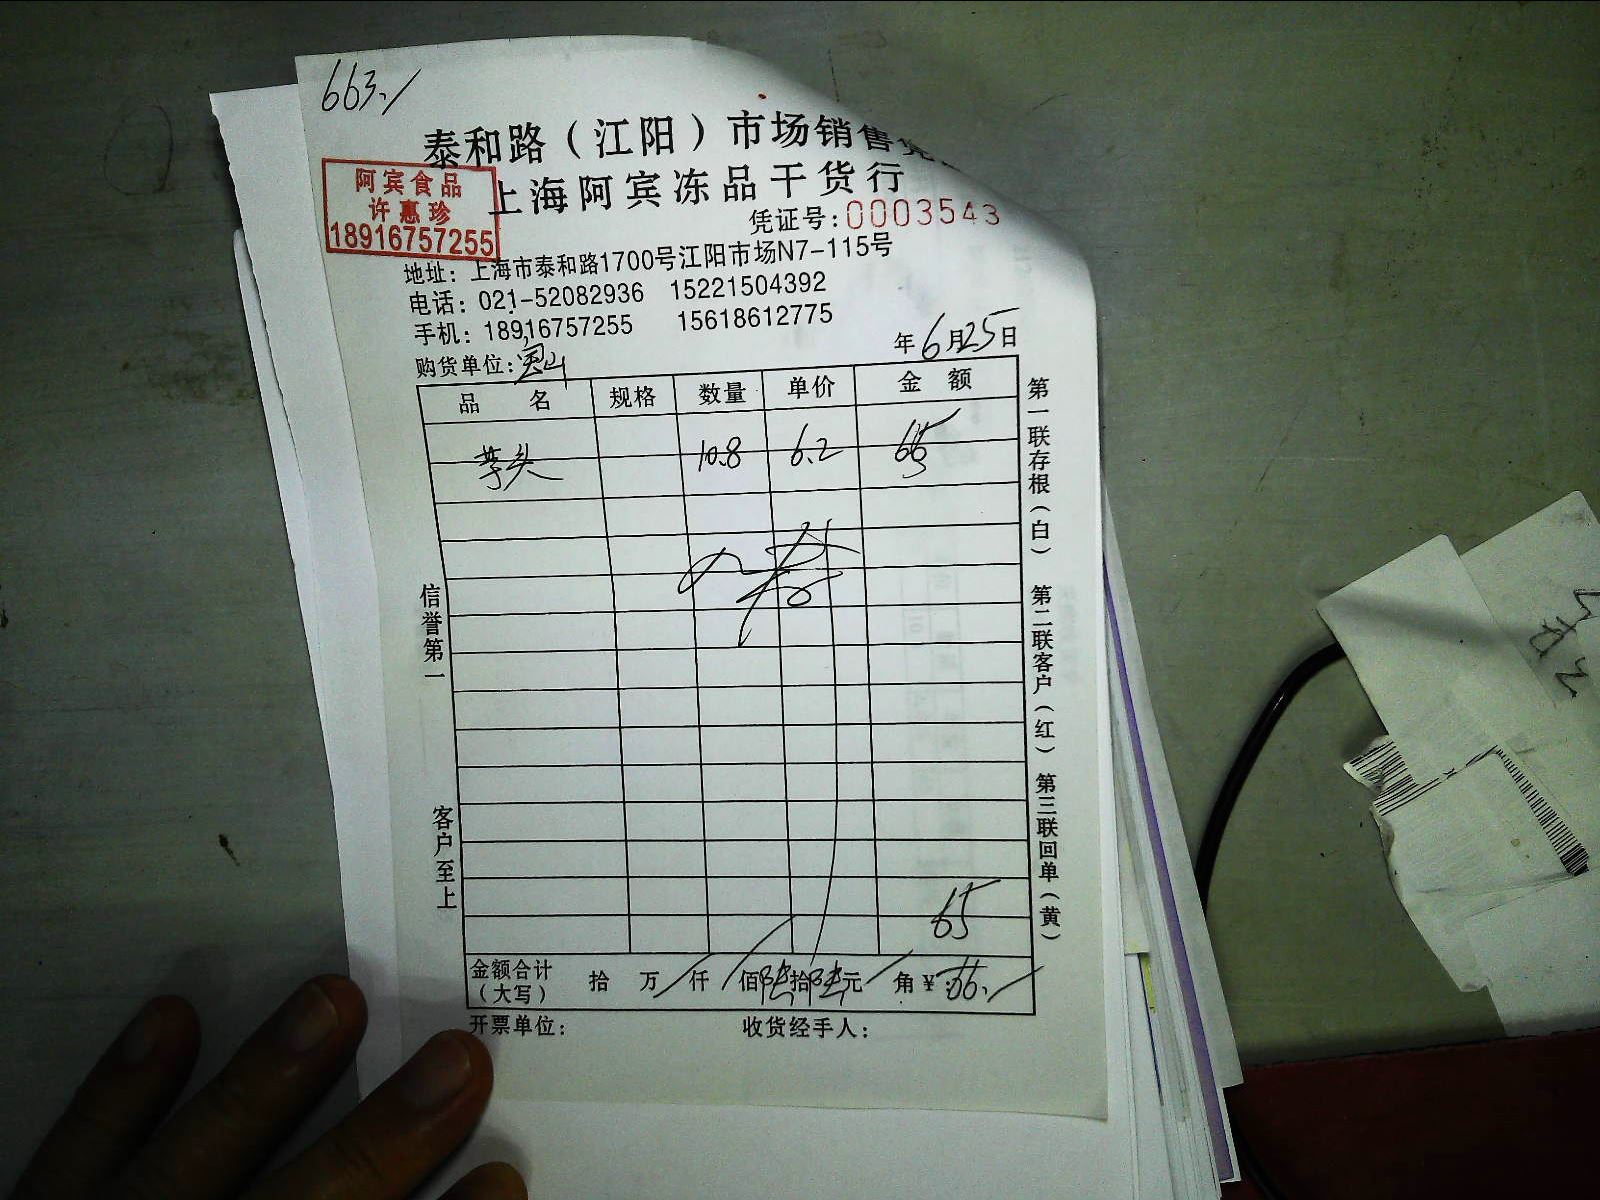 663./
泰和路（江阳）市场销售凭
上海阿宾冻品干货行
阿宾食品
许惠珍
18916757255
凭证号：0003543
地址：上海市泰和路1700号江阳市场N7-115号
电话：021-52082936 15221504392
手机：18916757255 15618612775
年6月25日
购货单位：宝山
品名 规格 数量 单价 金额
芋头 10.8 6.2
65
金额合计（大写） 拾 万 仟 佰 拾 元 角 ¥
开票单位： 收货经手人：
信誉第一 客户至上
第一联存根（白） 第二联客户（红） 第三联回单（黄）